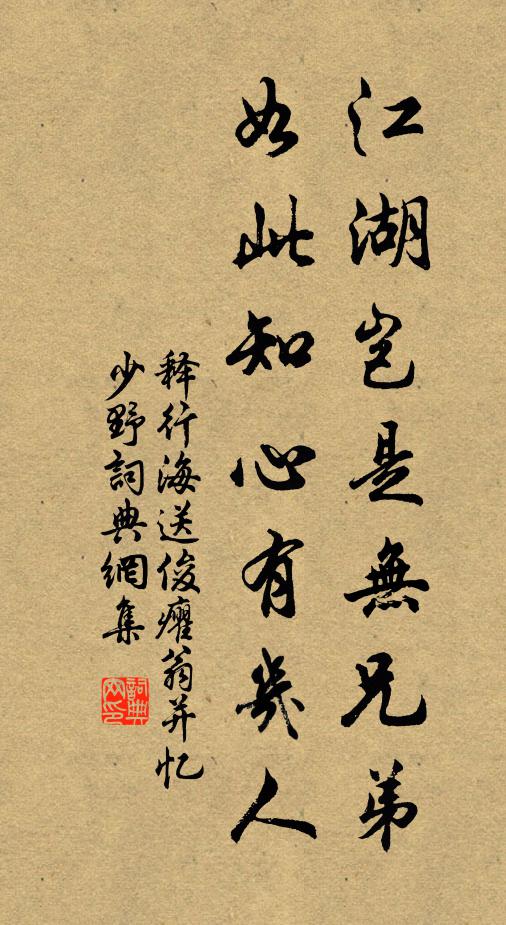 江湖豈是無兄弟
如此知心有幾人
释行海送俊癯翁并忆
少野詞典網集
詞典
网印